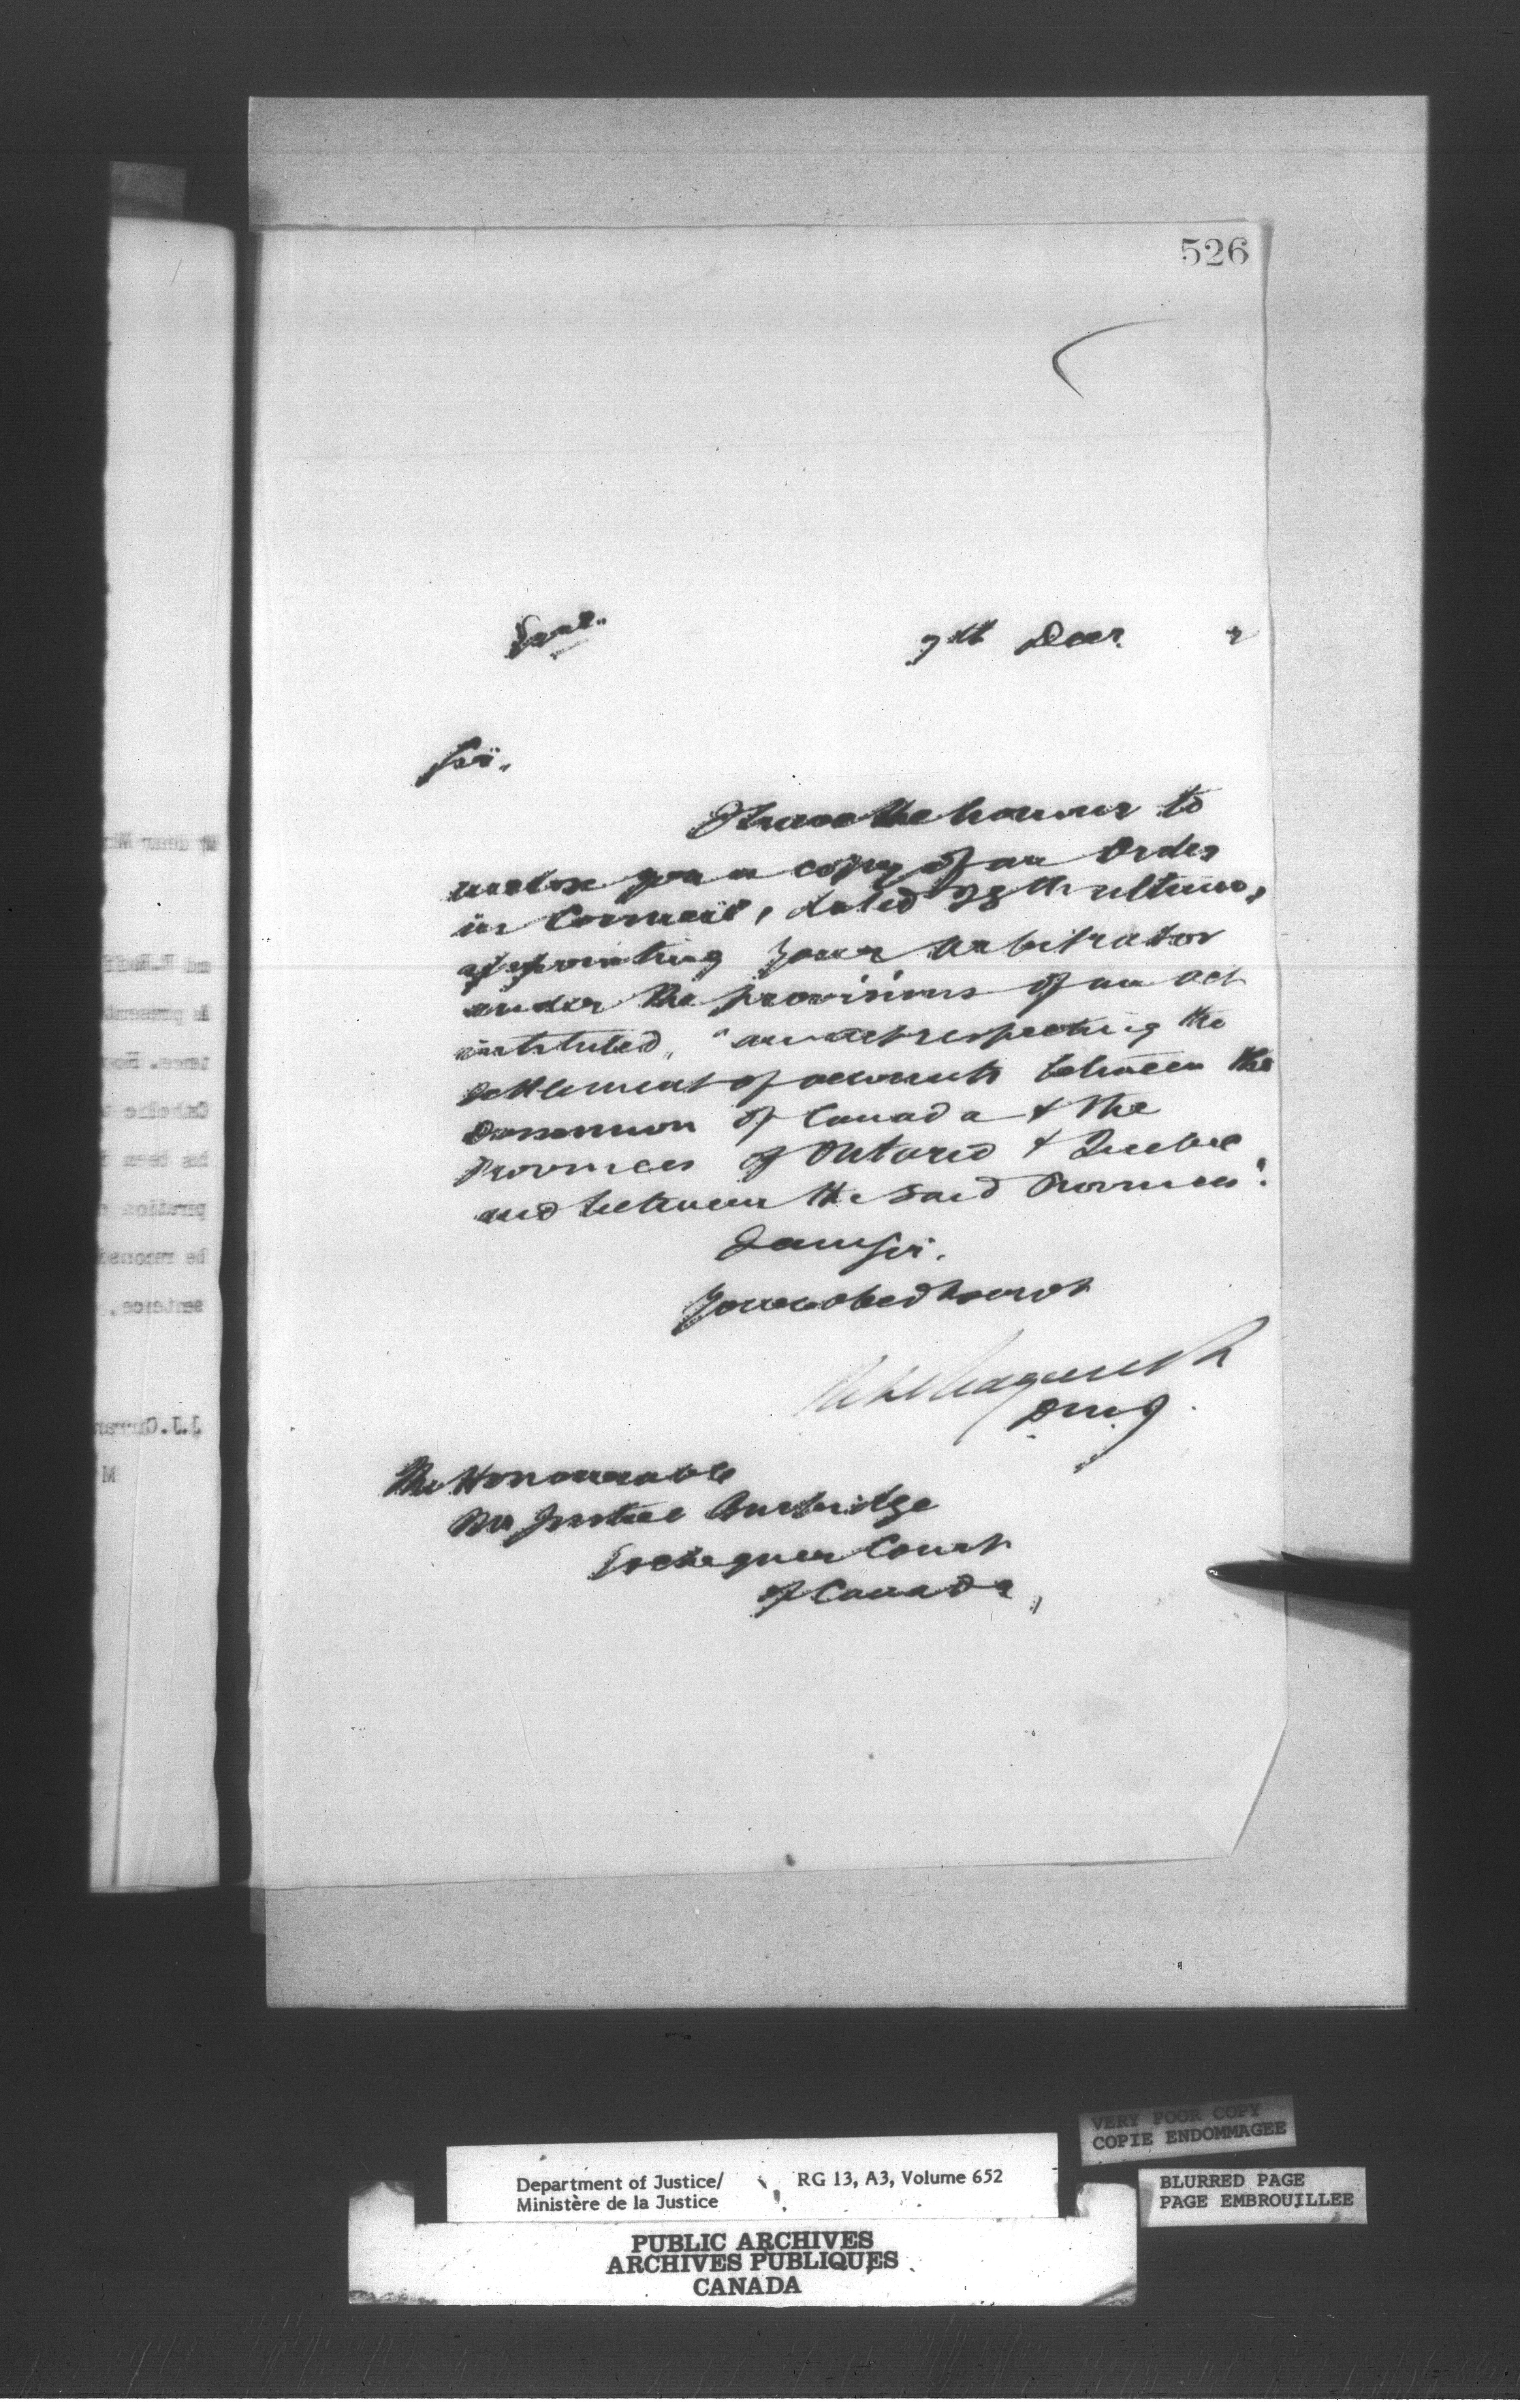 526
7th Decr. 2
Sir,
I have the honour to
enclose you a copy of an Order
in Council, dated 28th ultimo,
appointing your arbitrator
under the provisions of an act
intituled, "an act respecting the
settlement of accounts between the
Dominion of Canada & the
Provinces of Ontario & Quebec
and between the said Provinces".
I am Sir,
Your obed servt
D.M.J.
The Honourable
Mr Justice Burbidge
Exchequer Court
of Canada,
My dear
and
is present
tence.
has been
be
sentence,
J.J. Curran
M
VERY POOR COPY
COPIE ENDOMMAGEE
Department of Justice/
Ministère de la Justice
RG 13, A3, Volume 652
BLURRED PAGE
PAGE EMBROUILLEE
PUBLIC ARCHIVES
ARCHIVES PUBLIQUES
CANADA